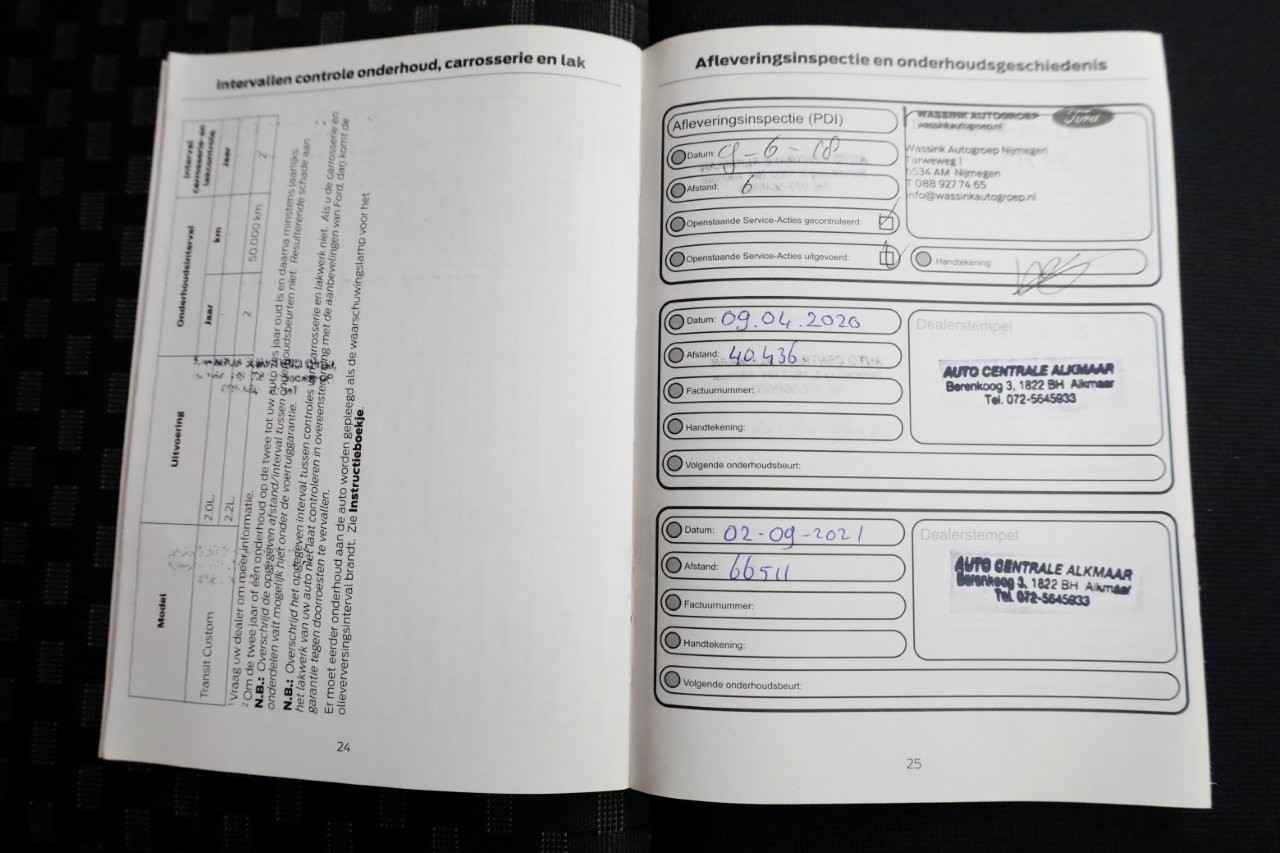 Intervallen controle onderhoud, carrosserie en lak
Model
Uitvoering
Onderhoudsinterval
Interval carrosserie- en lakcontrole
Jaar
km
Jaar
Transit Custom
2.0L
2.2L
2
50.000 km
2
1 Vraag uw dealer om meer informatie.
2 Om de twee jaar of één onderhoud op de twee tot uw auto zes jaar oud is en daarna minstens jaarlijks.
N.B.: Overschrijd de opgegeven afstand/interval tussen onderhoudsbeurten niet. Resulterende schade aan
onderdelen valt mogelijk niet onder de voertuiggarantie.
N.B.: Overschrijd het opgegeven interval tussen controles van carrosserie en lakwerk niet. Als u de carrosserie en
het lakwerk van uw auto niet laat controleren in overeenstemming met de aanbevelingen van Ford, dan komt de
garantie tegen doorroesten te vervallen.
Er moet eerder onderhoud aan de auto worden gepleegd als de waarschuwingslamp voor het
olieverversingsinterval brandt. Zie Instructieboekje.
24
Afleveringsinspectie en onderhoudsgeschiedenis
Afleveringsinspectie (PDI)
Datum: 9-6-18
Afstand: 6
Openstaande Service-Acties gecontroleerd:
Openstaande Service-Acties uitgevoerd:
WASSINK AUTOGROEP
wassinkautogroep.nl
Ford
Wassink Autogroep Nijmegen
6534 AM Nijmegen
T 088 927 74 65
info@wassinkautogroep.nl
Handtekening
Datum: 09.04.2020
Afstand: 40.436
Factuurnummer:
Handtekening:
Volgende onderhoudsbeurt:
Dealerstempel
AUTO CENTRALE ALKMAAR
Berenkoog 3, 1822 BH Alkmaar
Tel. 072-5645933
Datum: 02-09-2021
Afstand: 66511
Factuurnummer:
Handtekening:
Volgende onderhoudsbeurt:
Dealerstempel
AUTO CENTRALE ALKMAAR
Berenkoog 3, 1822 BH Alkmaar
Tel. 072-5645933
25